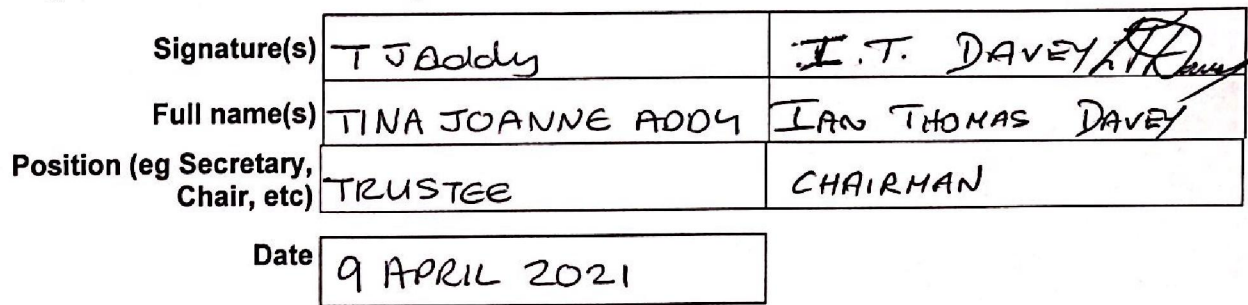 Signature(s) T J Addy I.T. DAVEY
Full name(s) TINA JOANNE ADDY IAN THOMAS DAVEY
Position (eg Secretary, Chair, etc) TRUSTEE CHAIRMAN
Date 9 APRIL 2021